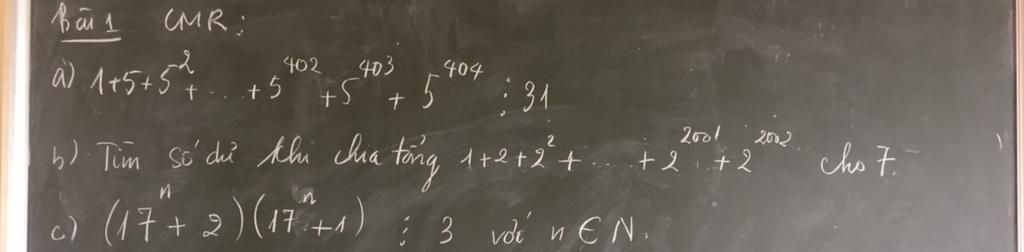 Bài 1 CMR:
a) 1+5+5² + ... + 5⁴⁰² + 5⁴⁰³ + 5⁴⁰⁴ ⋮ 31
b). Tìm số dư khi chia tổng 1+2+2² + ... + 2²⁰⁰¹ + 2²⁰⁰² cho 7.
c) (17ⁿ + 2)(17ⁿ + 1) ⋮ 3 với n ∈ N.